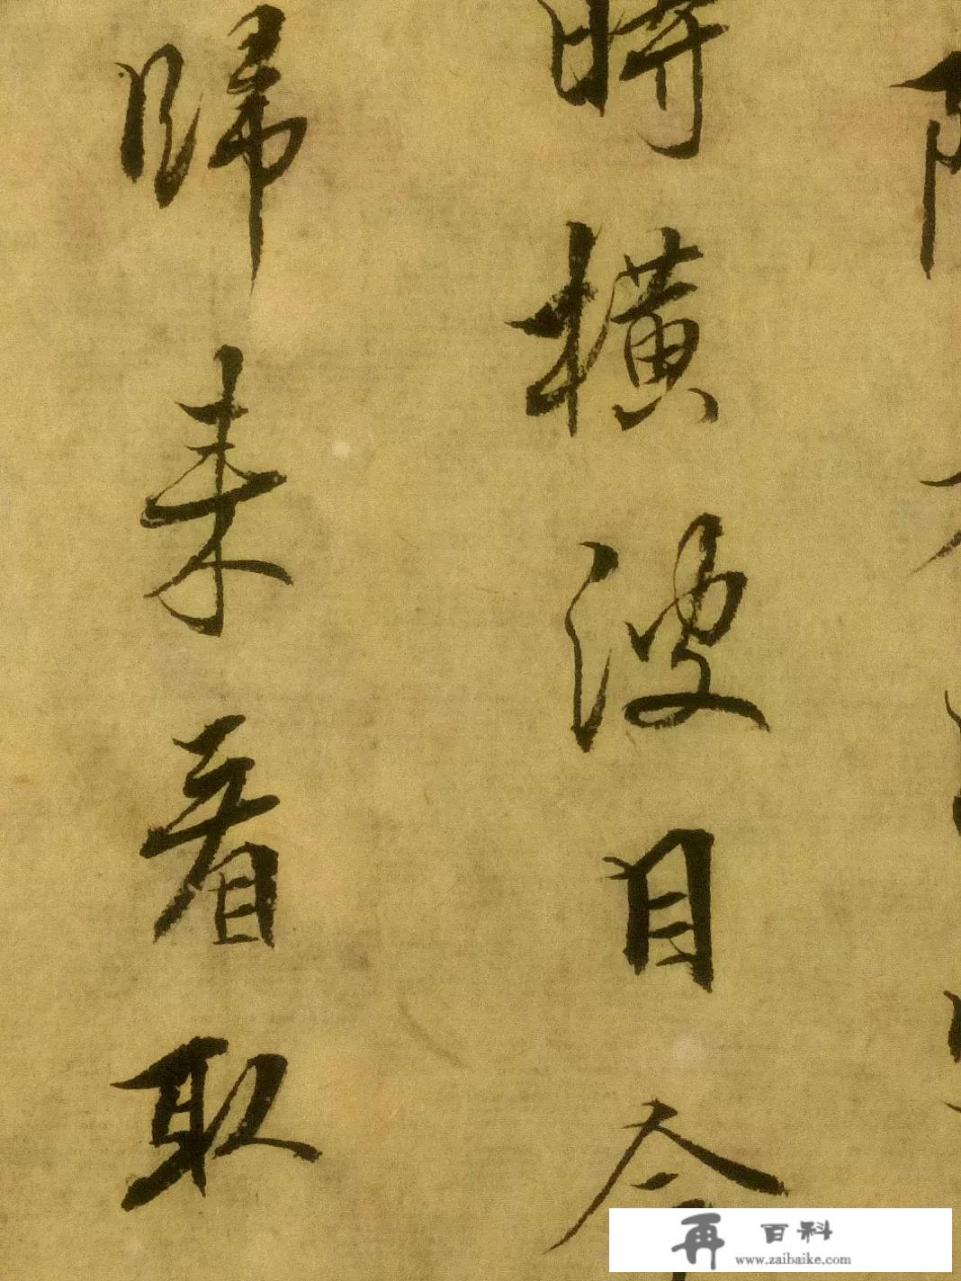 時橫波目今
歸来看取
再百科
www.zaibaike.com